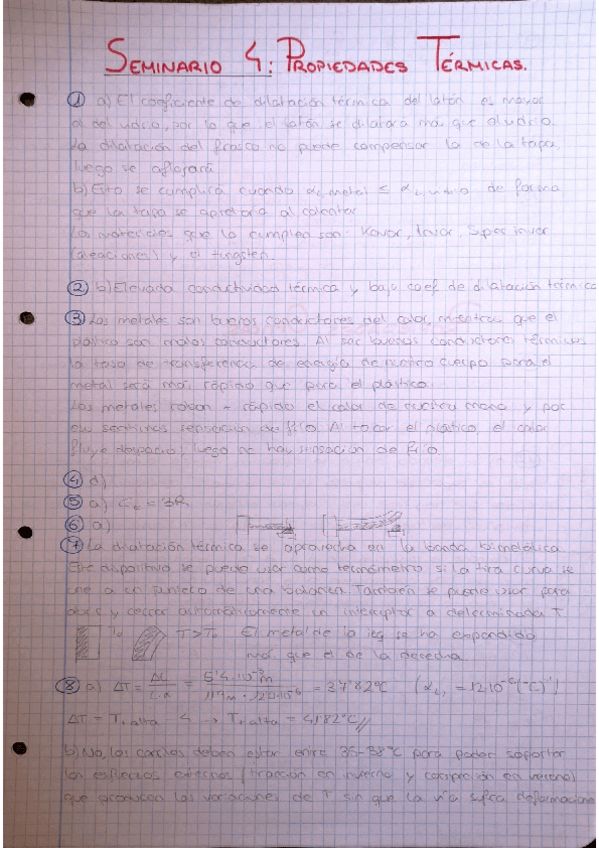 SEMINARIO 4: PROPIEDADES TÉRMICAS.
① a) El coeficiente de dilatación térmica del latón es mayor
al del vidrio, por lo que el latón se dilatará más que el vidrio.
La dilatación del frasco no puede compensar la de la tapa,
luego se aflojará
b) Esto se cumplirá cuando αL metal ≤ αL vidrio de forma
que la tapa se apretaría al calentar
Los materiales que lo cumplen son: Kovar, Invar, Super invar
(aleaciones) y el tungsten.
② b) Elevada conductividad térmica y bajo coef de dilatación térmica
③ Los metales son buenos conductores del calor, mientras que el
plástico son malos conductores. Al ser buenos conductores térmicos
la tasa de transferencia de energía de nuestro cuerpo para el
metal será más rápido que para el plástico.
Los metales roban + rápido el calor de nuestra mano y por
eso sentimos sensación de frío. Al tocar el plástico, el calor
fluye despacio, luego no hay sensación de frío.
④ d)
⑤ a) Cv = 3R
⑥ a)
⑦ La dilatación térmica se aprovecha en la banda bimetálica.
Este dispositivo se puede usar como termómetro si la tira curva se
une a un puntero de una balanza. También se puede usar para
abrir y cerrar automáticamente un interruptor a determinada T.
T₀ T>T₀ El metal de la izq se ha expandido
más que el de la derecha
⑧ a) ΔT = = 5'4·10⁻³m = 37'82°C
ΔT = T alta - 4 → T alta = 41'82°C //
b) No, los carriles deben estar entre 35-38°C para poder soportar
los esfuerzos externos (tracción en invierno y compresión en verano)
que producen las variaciones de T sin que la vía sufra deformaciones